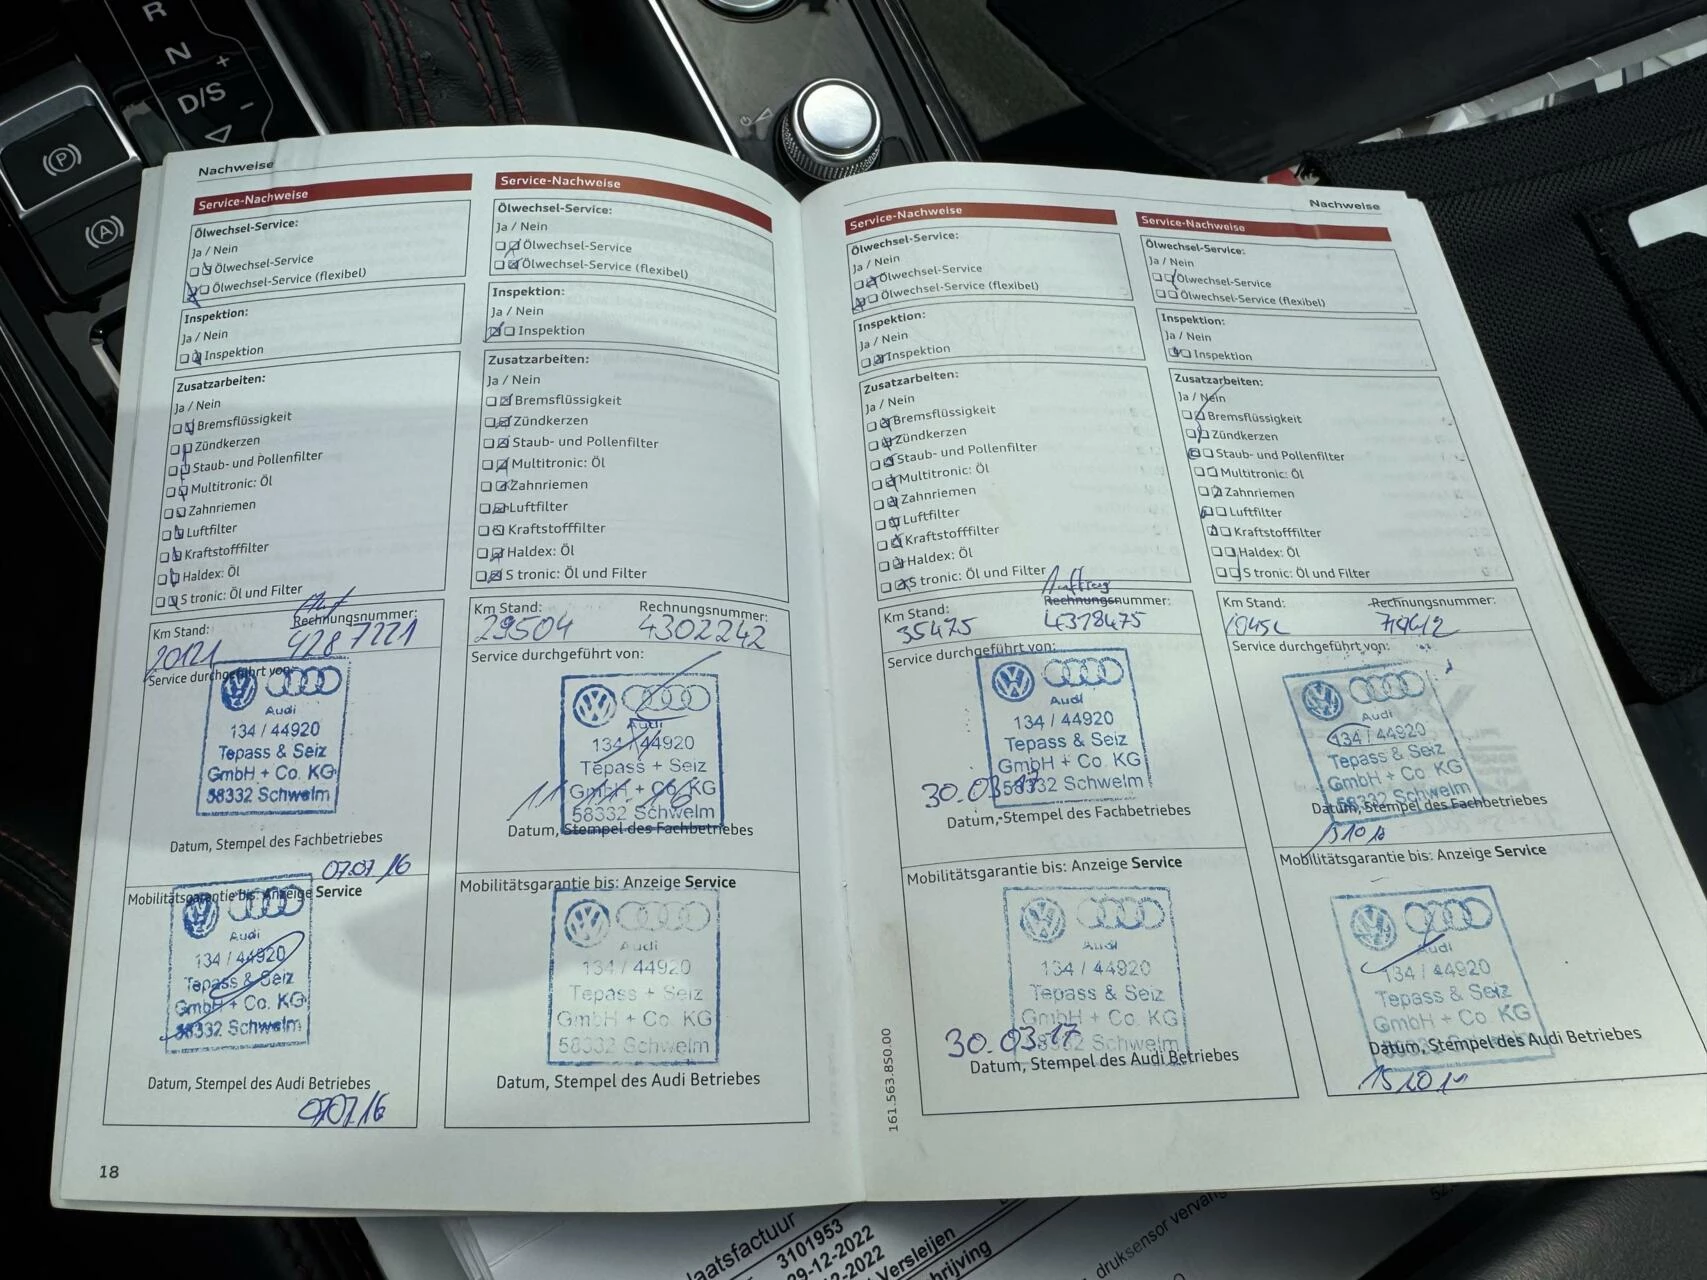 R
N
+
D/S
-
P
A
Nachweise
Service-Nachweise
Ölwechsel-Service:
Ja / Nein
Ölwechsel-Service
Ölwechsel-Service (flexibel)
Inspektion:
Ja / Nein
Inspektion
Zusatzarbeiten:
Ja / Nein
Bremsflüssigkeit
Zündkerzen
Staub- und Pollenfilter
Multitronic: Öl
Zahnriemen
Luftfilter
Kraftstofffilter
Haldex: Öl
S tronic: Öl und Filter
Km Stand:
Rechnungsnummer:
20121
4287221
Service durchgeführt von:
Audi
134 / 44920
Tepass & Seiz
GmbH + Co. KG
58332 Schwelm
Datum, Stempel des Fachbetriebes
07.07.16
Mobilitätsgarantie bis: Anzeige Service
Audi
134 / 44920
Tepass & Seiz
GmbH + Co. KG
58332 Schwelm
Datum, Stempel des Audi Betriebes
07.07.16
18
Service-Nachweise
Ölwechsel-Service:
Ja / Nein
Ölwechsel-Service
Ölwechsel-Service (flexibel)
Inspektion:
Ja / Nein
Inspektion
Zusatzarbeiten:
Ja / Nein
Bremsflüssigkeit
Zündkerzen
Staub- und Pollenfilter
Multitronic: Öl
Zahnriemen
Luftfilter
Kraftstofffilter
Haldex: Öl
S tronic: Öl und Filter
Km Stand:
Rechnungsnummer:
29504
4302242
Service durchgeführt von:
Audi
134 / 44920
Tepass + Seiz
GmbH + Co. KG
58332 Schwelm
11.11.16
Datum, Stempel des Fachbetriebes
Mobilitätsgarantie bis: Anzeige Service
Audi
134 / 44920
Tepass + Seiz
GmbH + Co. KG
58332 Schwelm
Datum, Stempel des Audi Betriebes
Nachweise
Service-Nachweise
Ölwechsel-Service:
Ja / Nein
Ölwechsel-Service
Ölwechsel-Service (flexibel)
Inspektion:
Ja / Nein
Inspektion
Zusatzarbeiten:
Ja / Nein
Bremsflüssigkeit
Zündkerzen
Staub- und Pollenfilter
Multitronic: Öl
Zahnriemen
Luftfilter
Kraftstofffilter
Haldex: Öl
S tronic: Öl und Filter
Auftrag
Km Stand:
Rechnungsnummer:
35475
4378475
Service durchgeführt von:
Audi
134 / 44920
Tepass & Seiz
GmbH + Co. KG
58332 Schwelm
30.03.17
Datum, Stempel des Fachbetriebes
Mobilitätsgarantie bis: Anzeige Service
Audi
134 / 44920
Tepass & Seiz
GmbH + Co. KG
58332 Schwelm
30.03.17
Datum, Stempel des Audi Betriebes
161.563.850.00
Service-Nachweise
Ölwechsel-Service:
Ja / Nein
Ölwechsel-Service
Ölwechsel-Service (flexibel)
Inspektion:
Ja / Nein
Inspektion
Zusatzarbeiten:
Ja / Nein
Bremsflüssigkeit
Zündkerzen
Staub- und Pollenfilter
Multitronic: Öl
Zahnriemen
Luftfilter
Kraftstofffilter
Haldex: Öl
S tronic: Öl und Filter
Km Stand:
Rechnungsnummer:
Service durchgeführt von:
Audi
134 / 44920
Tepass & Seiz
GmbH + Co. KG
58332 Schwelm
Datum, Stempel des Fachbetriebes
Mobilitätsgarantie bis: Anzeige Service
Audi
134 / 44920
Tepass & Seiz
GmbH + Co. KG
Datum, Stempel des Audi Betriebes
3101953
29-12-2022
-2022
Versleijen
druksensor